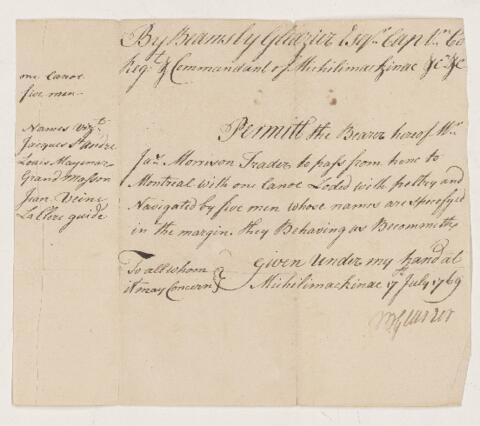 By Beamsly Glazier Esqr. Capt. in
Regt. & Commandant of Michilimackinac &c. &c.
one Canoe
five men
Names vizt.
Jacques St. Andre
Louis Maymar
Grand Masson
Jean Veine
La Clere guide
Permitt the Bearer hereof Mr.
Jas. Morrison Trader to pass from hence to
Montreal with one Canoe Loded with peltry and
Navigated by five men whose names are Specefyed
in the margin. they Behaving as Becommeth
To all whom
it may Concern
Given Under my hand at
Michilimackinac 17th July 1769
BGlazier